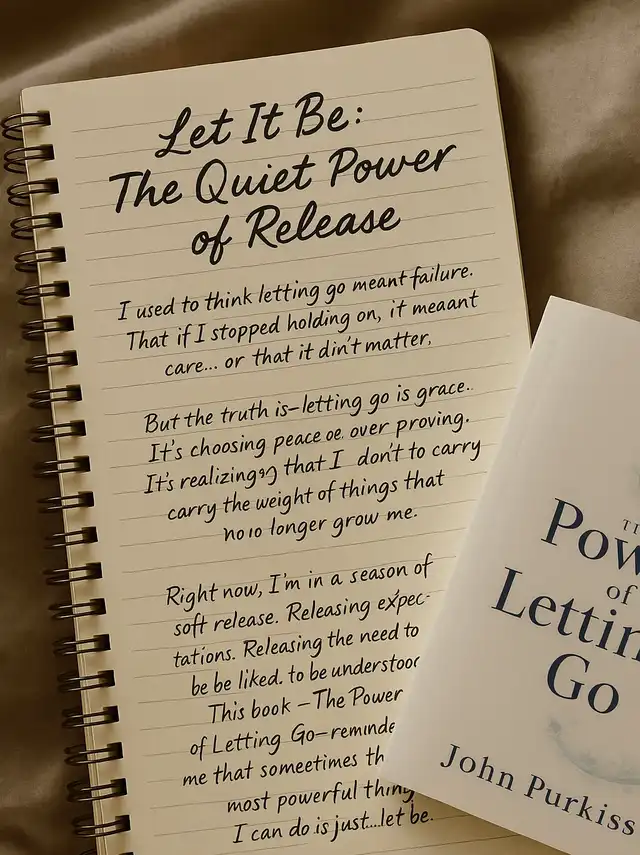 Let It Be:
The Quiet Power
of Release
I used to think letting go meant failure.
That if I stopped holding on, it meaant
care... or that it din't matter,
But the truth is—letting go is grace.
It's choosing peace oe. over proving.
It's realizing that I don't to carry
carry the weight of things that
no longer grow me.
Right now, I'm in a season of
soft release. Releasing expec-
tations. Releasing the need to
be be liked. to be understood
This book —The Power
of Letting Go—reminde
me that someetimes th
most powerful thing
I can do is just...let be.
Pow
of
Lettin
Go
John Purkiss